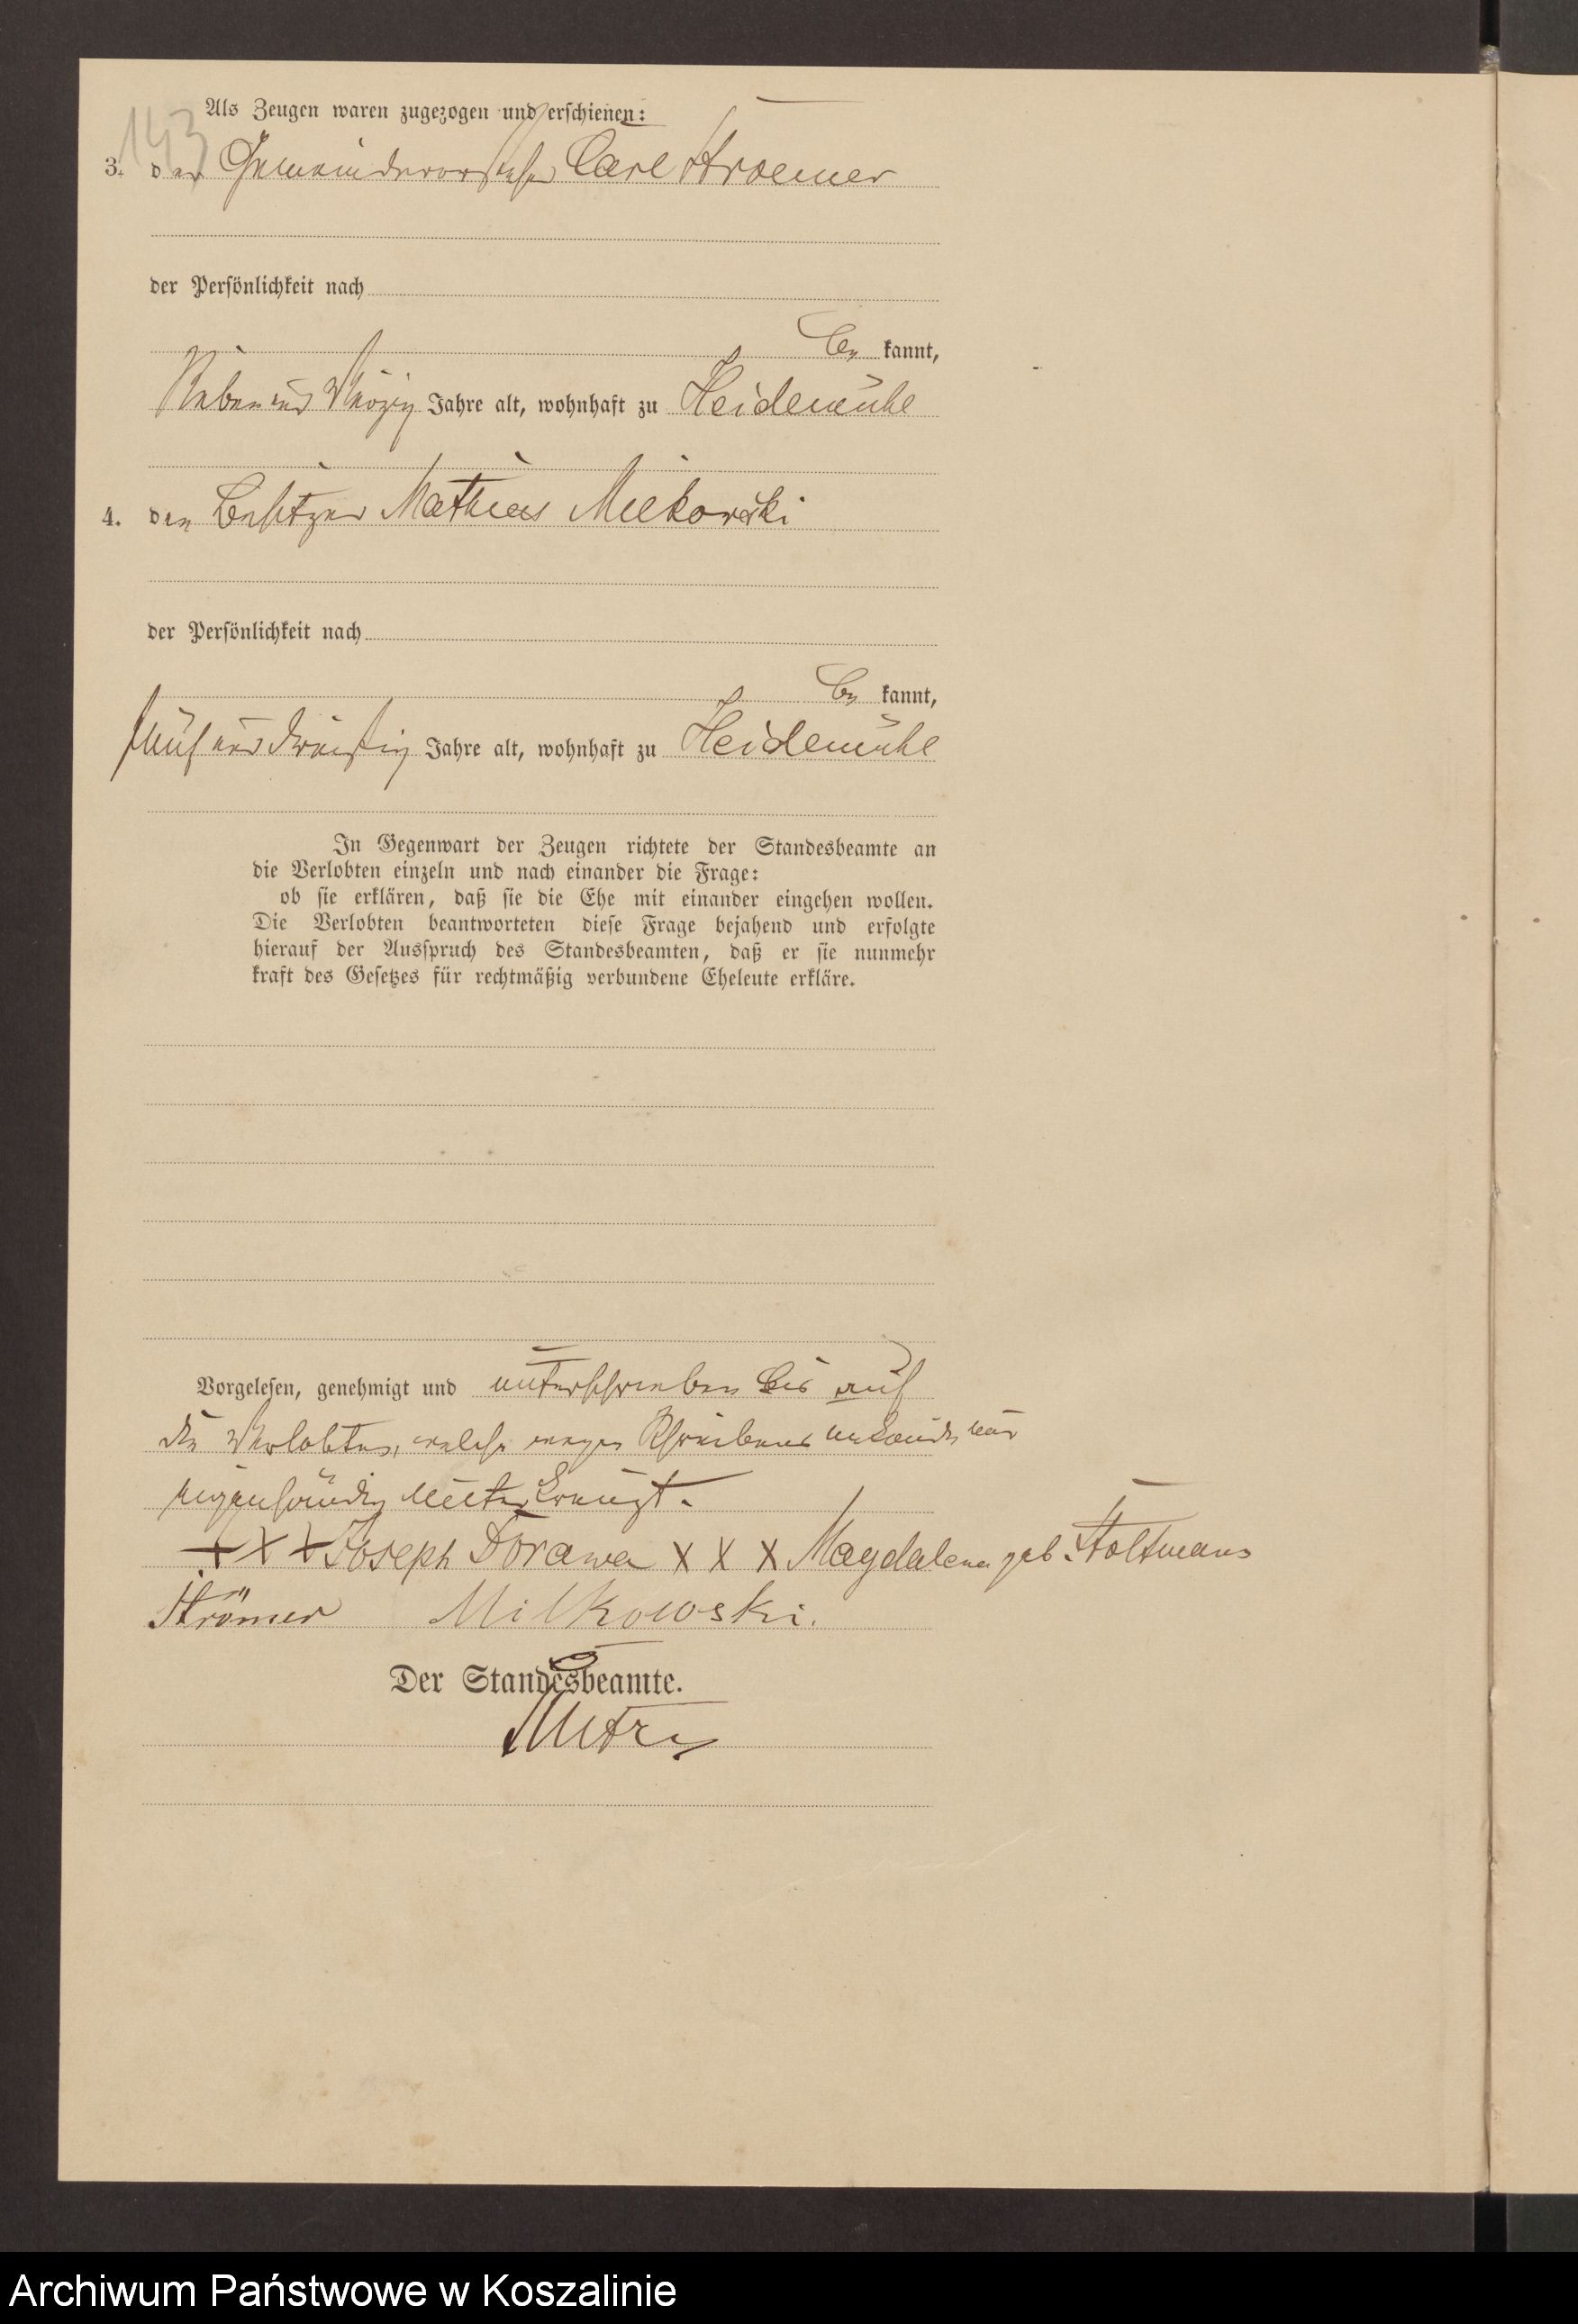 143
Als Zeugen waren zugezogen und erschienen:
3. der Gemeindevorsteher Carl Stroemer
der Persönlichkeit nach
be kannt,
Sieben und vierzig Jahre alt, wohnhaft zu Heidemühl
4. der Besitzer Mathias Milkowski
der Persönlichkeit nach
be kannt,
fünf und dreißig Jahre alt, wohnhaft zu Heidemühl
In Gegenwart der Zeugen richtete der Standesbeamte an
die Verlobten einzeln und nach einander die Frage:
ob sie erklären, daß sie die Ehe mit einander eingehen wollen.
Die Verlobten beantworteten diese Frage bejahend und erfolgte
hierauf der Ausspruch des Standesbeamten, daß er sie nunmehr
kraft des Gesetzes für rechtmäßig verbundene Eheleute erkläre.
Vorgelesen, genehmigt und unterschrieben bis auf
die Verlobten, welche wegen Schreibens unkundig
eigenhändig unterkreuzt.
+ X + Joseph Dorawa X X X Magdalena geb. Stoltmann
Strömer Milkowski.
Der Standesbeamte.
Archiwum Państwowe w Koszalinie